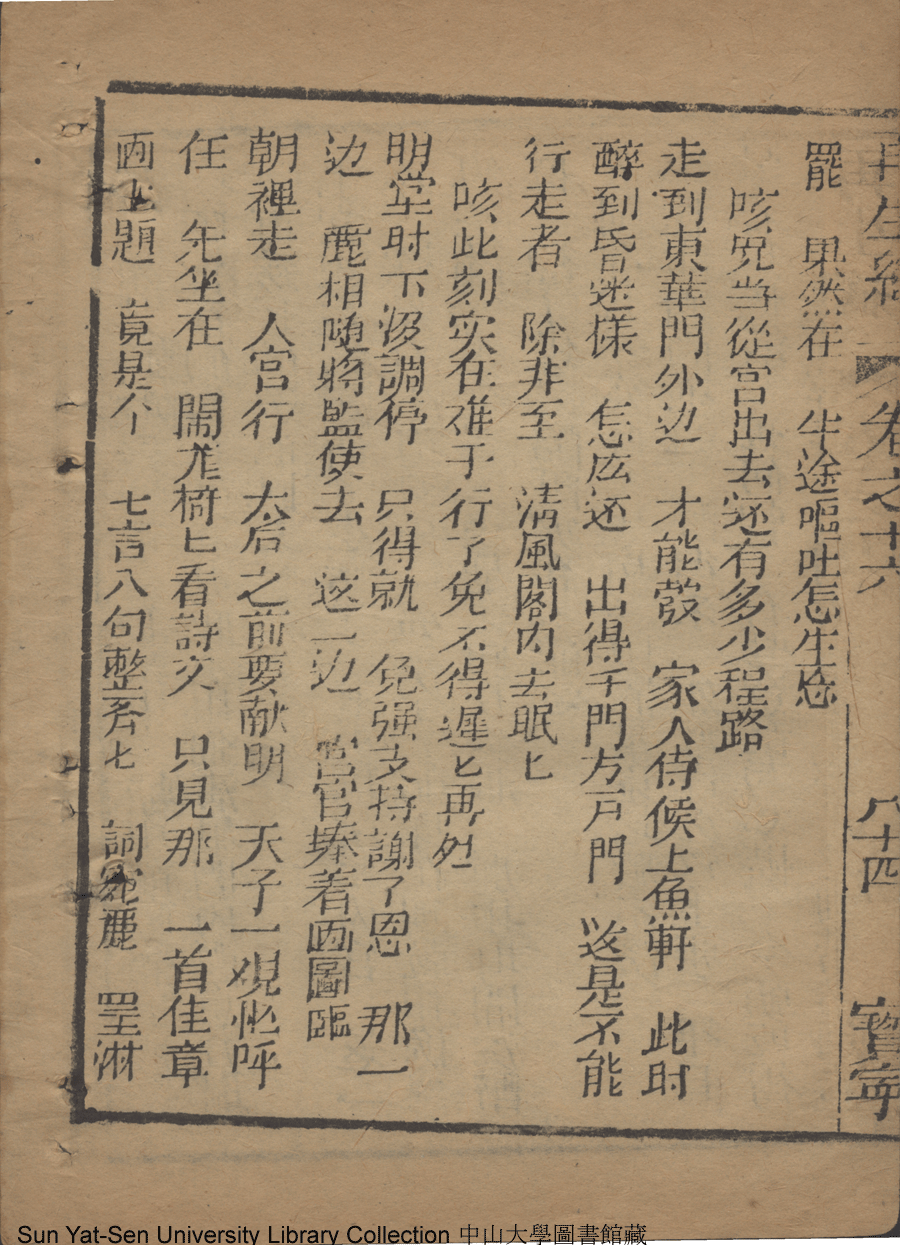 再生緣 卷之十六 八十四 寳寧
罷 果然在 半途嘔吐怎生忘
咳况当從宮出去还有多少程路
走到東華門外边 才能彀 家人侍候上魚軒 此时
醉到昏迷様 怎庅还 出得千門万戸門 这是不能
行走者 除非至 清風閣内去眠匕
咳此刻实在难于行了免不得遲匕再处
明堂时下没調停 只得就 免强支持謝了恩 那一
边 麗相随將監使去 这一边 宫官捧着画圖臨
朝裡走 人宮行 太后之前要献明 天子一覌忙呼
住 先坐在 閙龙椅匕看詩文 只見那 一首佳章
画上題 竟是个 七言八句整齐七 詞宛麗 墨淋
Sun Yat-Sen University Library Collection 中山大學圖書館藏